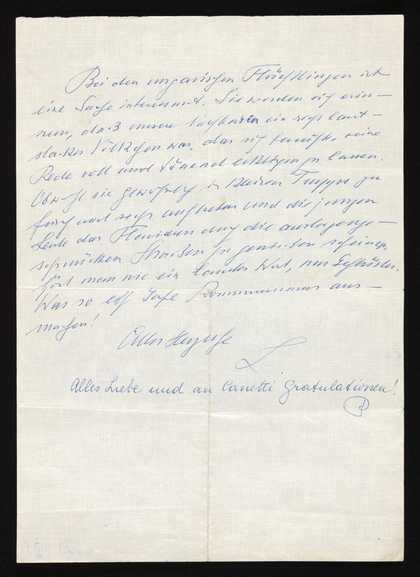 Bei den ungarischen Flüchtlingen ist
eine Sache interessant. Sie werden sich erin-
nern, daß unsere ein sehr laut-
starkes Völkchen war, das sich bemühte, seine
Rede voll und tönend erklingen zu lassen.
Obwohl sie gewöhnlich in kleinen Truppen zu
fünf und sechs auftreten und die jungen
Leute das Flanieren durch die
Straßen zu genießen scheinen,
hört man nie ein lautes Wort, nur Geflüster.
Was so elf Jahre Kommunismus aus-
machen!
Alles Herzliche
L.
Alles Liebe und an Canetti Gratulationen!